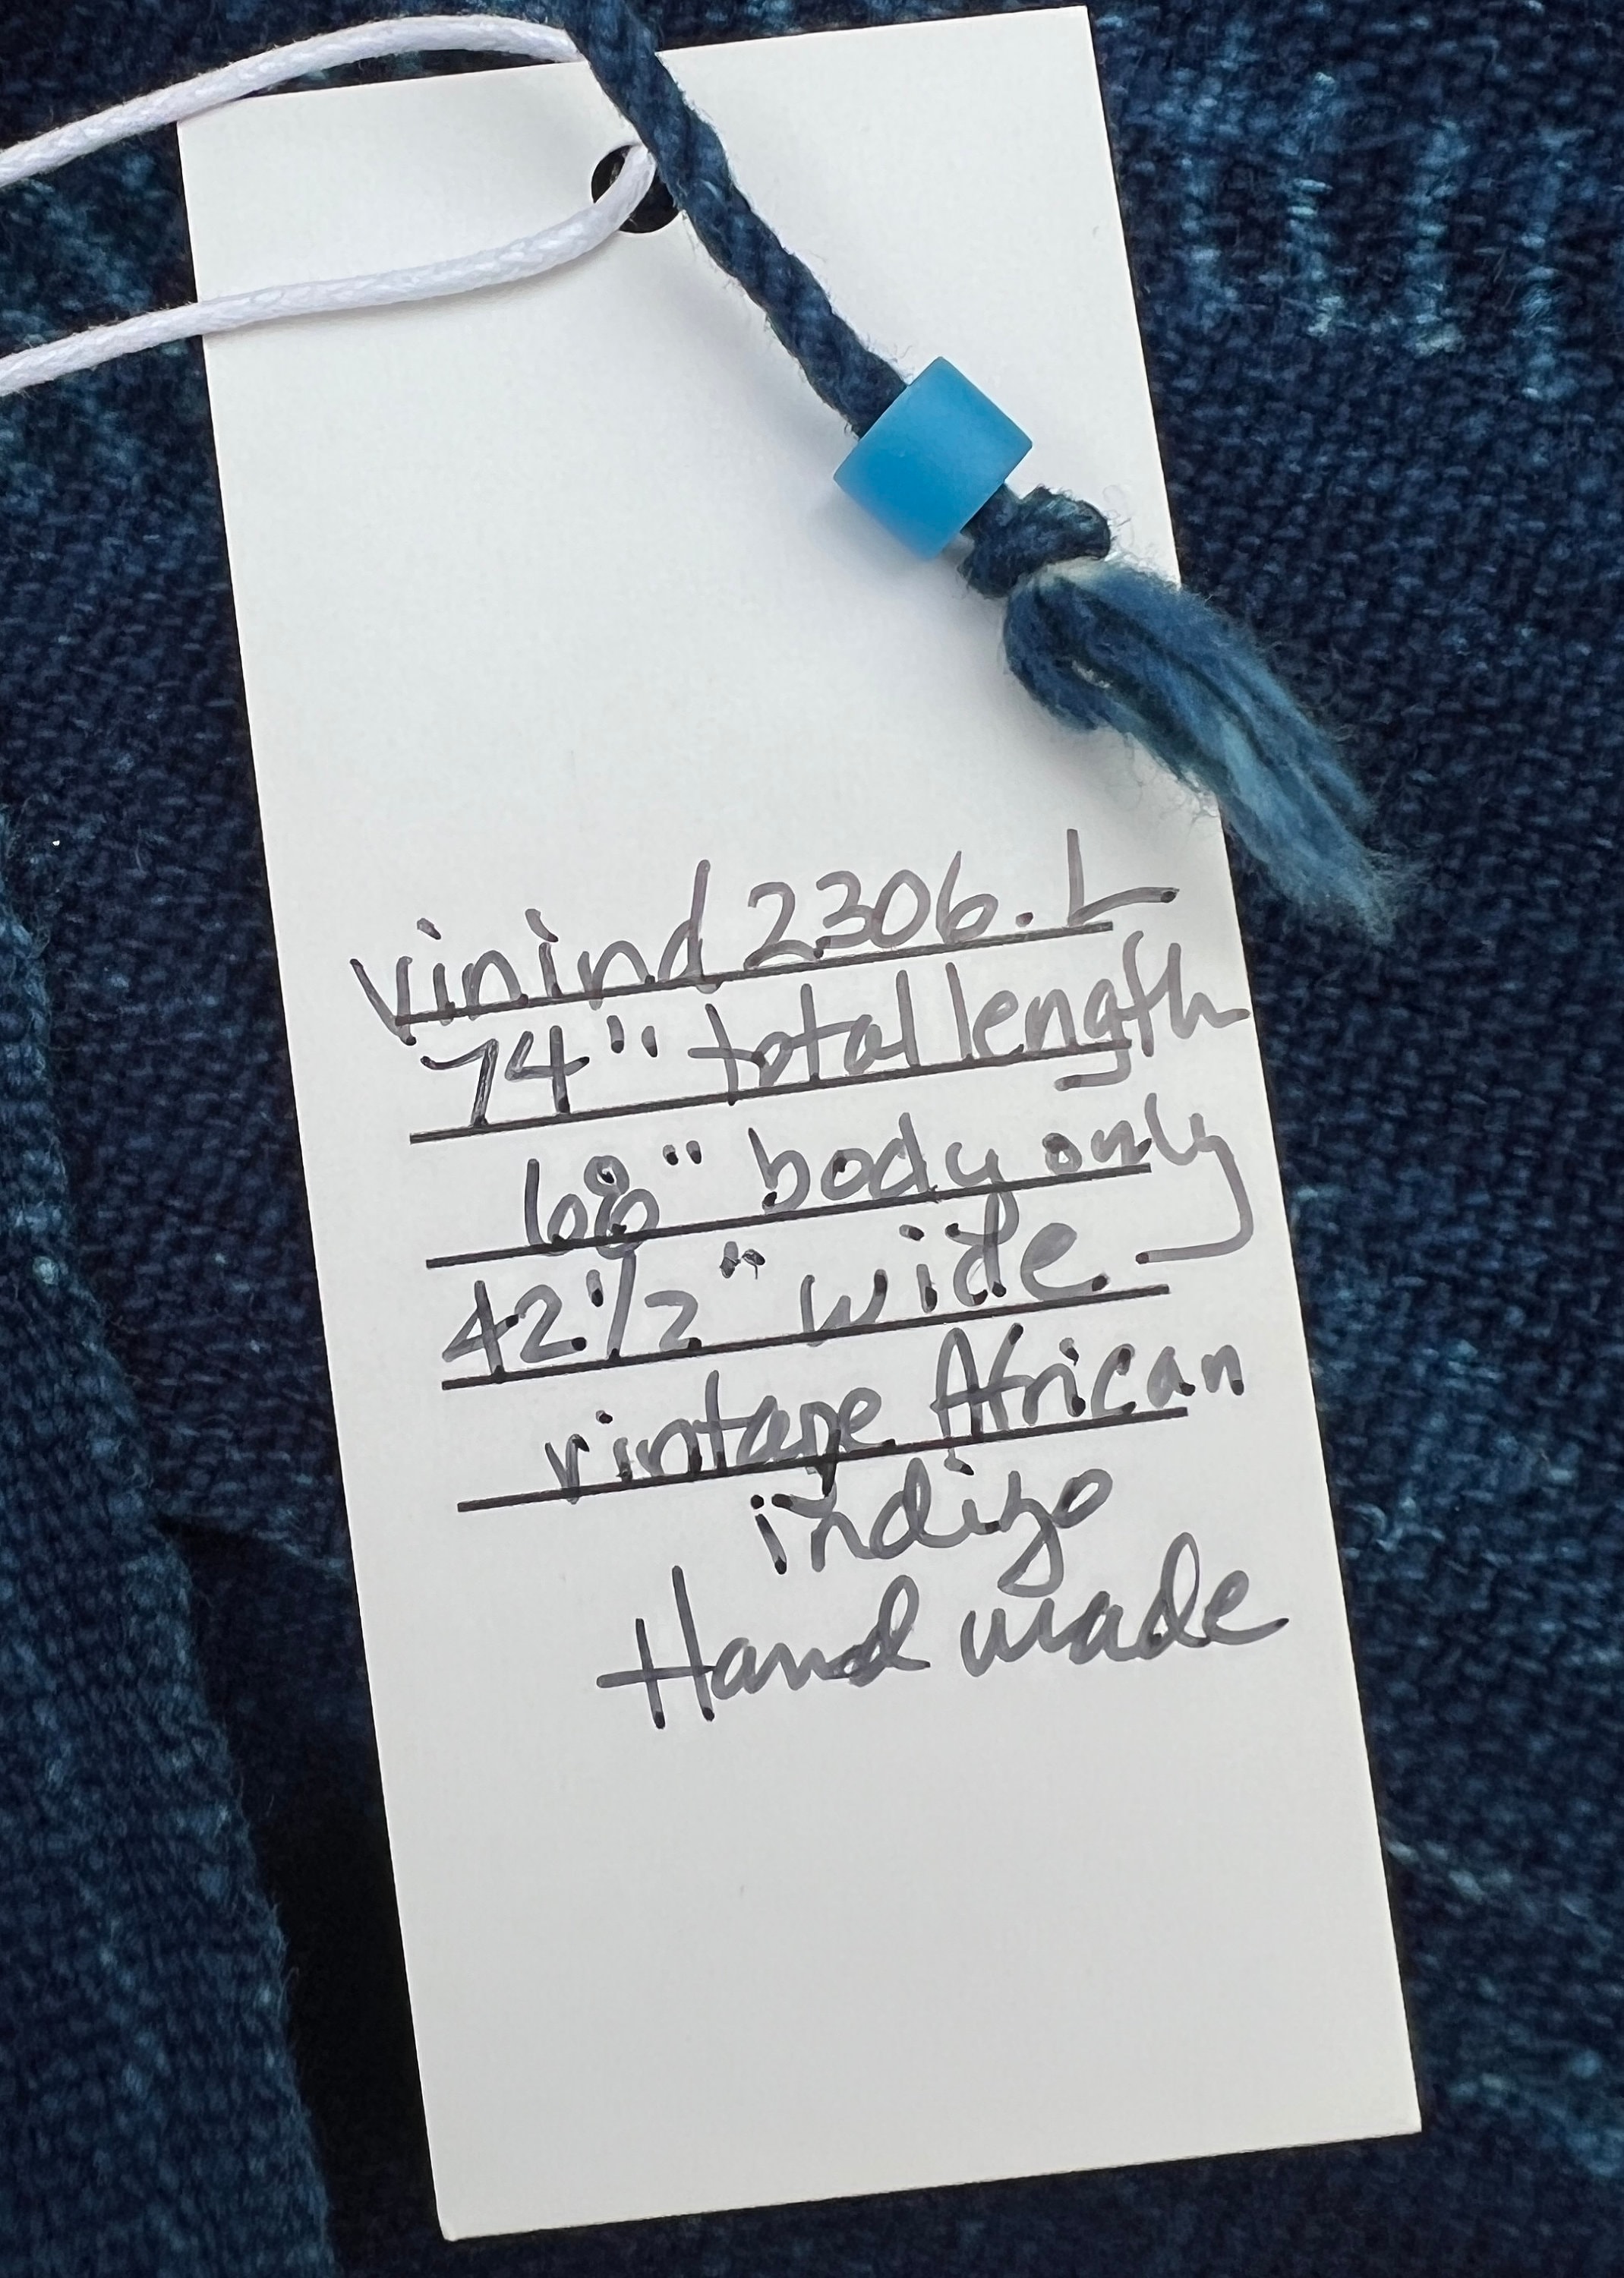 vinind 2306.L
74" total length
68" body only
42 1/2" wide
vintage African
indigo
Hand made